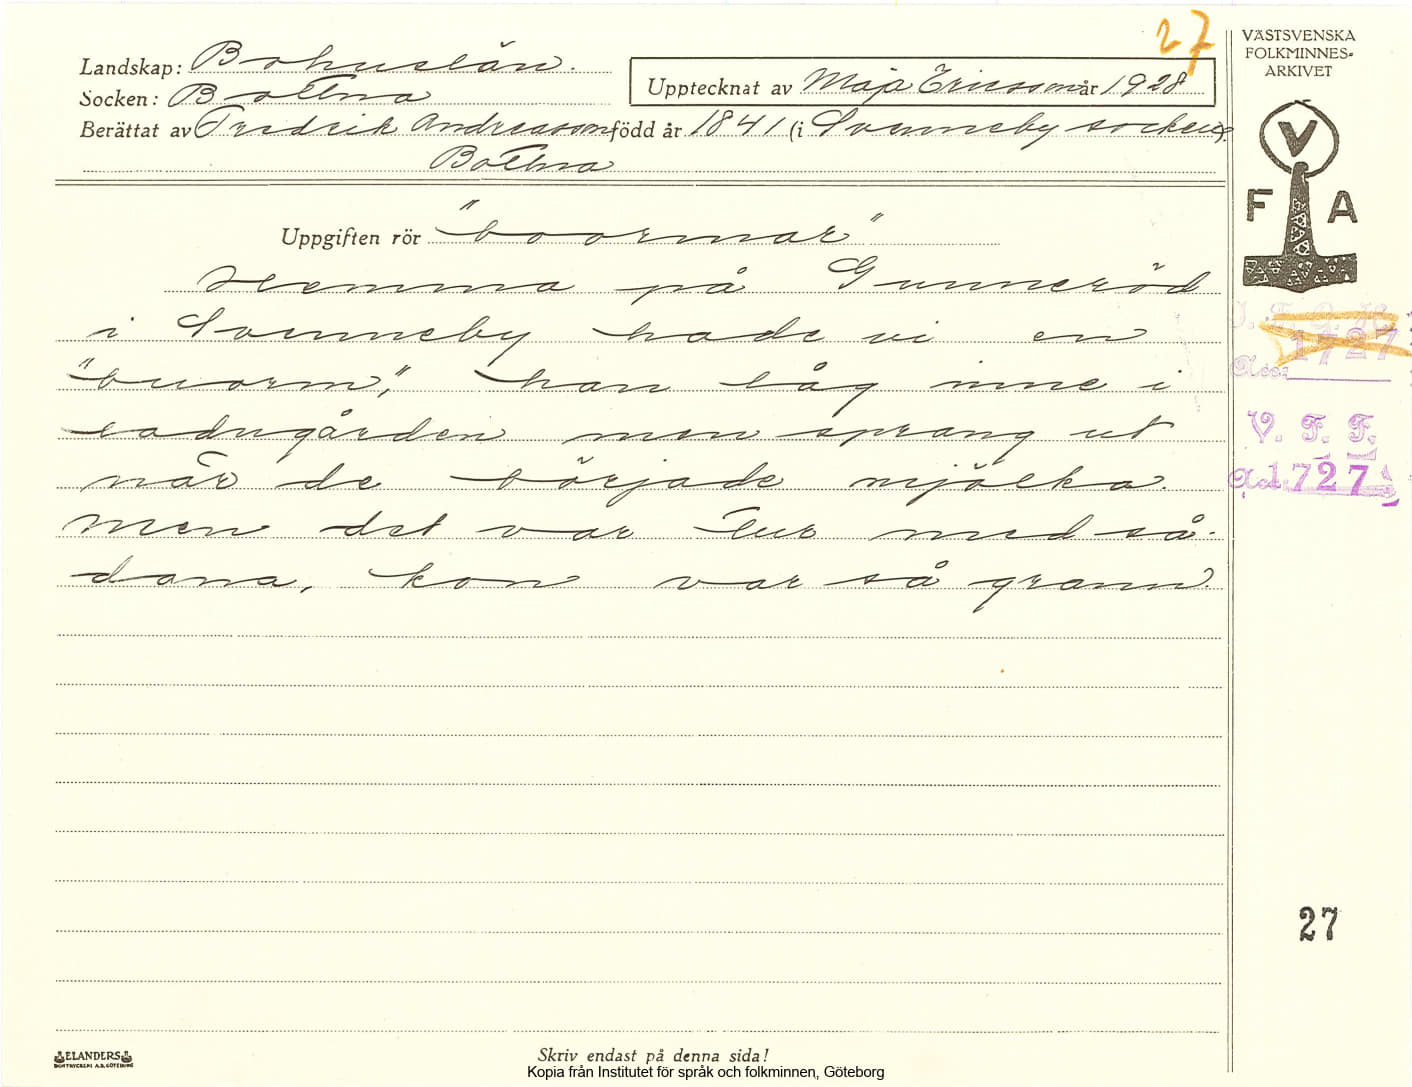 27
Landskap: Bohuslän.
Socken: Bottna
Upptecknat av Maja Ericsson år 1928
Berättat av Fredrik Andreasson född år 1841 (i Svenneby socken).
Bottna
Uppgiften rör "boormar"
Hemma på Gunneröd
i Svenneby hade vi en
"buorm", han låg inne i
ladugården men sprang ut
när de började mjölka.
Men det var tur med så-
dana, kon var så grann.
VÄSTSVENSKA
FOLKMINNES-
ARKIVET
V
F A
1727
Acc.
V. F. F.
Acc. 1727
27
ELANDERS
BOKTRYCKERI A.B. GÖTEBORG
Skriv endast på denna sida!
Kopia från Institutet för språk och folkminnen, Göteborg